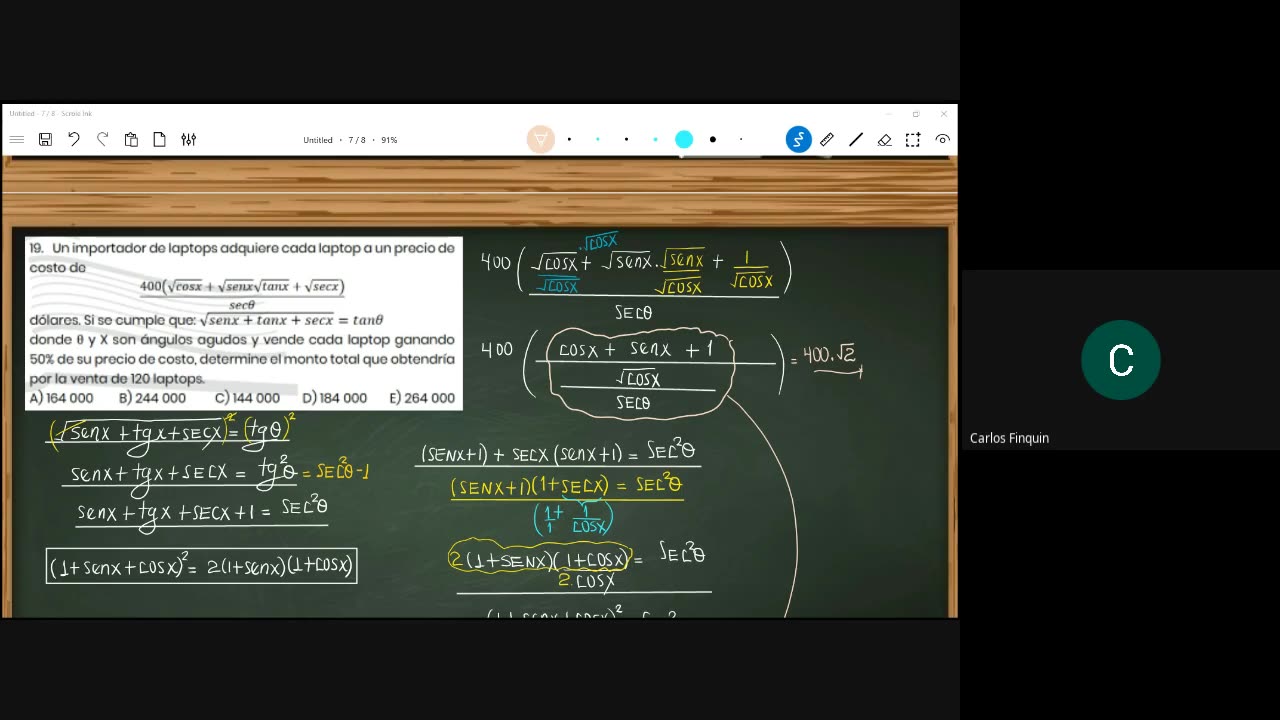 Untitled - 7 / 8 - Scrble Ink
Untitled • 7 / 8 • 91%
19. Un importador de laptops adquiere cada laptop a un precio de
costo de
400(√cosx + √senx√tanx + √secx)
secθ
dólares. Si se cumple que: √senx + tanx + secx = tanθ
donde θ y X son ángulos agudos y vende cada laptop ganando
50% de su precio de costo, determine el monto total que obtendría
por la venta de 120 laptops.
A) 164 000 B) 244 000 C) 144 000 D) 184 000 E) 264 000
(√senx + tgx + secx)² = (tgθ)²
senx + tgx + secx = tg²θ = sec²θ-1
senx + tgx + secx + 1 = sec²θ
(1+senx+cosx)² = 2(1+senx)(1+cosx)
.√cosx
400 ( √cosx + √senx . √senx + 1 )
√cosx √cosx √cosx
secθ
400 ( cosx + senx + 1 ) = 400.√2
√cosx
secθ
(senx+1) + secx (senx+1) = sec²θ
(senx+1)(1+secx) = sec²θ
(1/1 + 1/cosx)
2(1+senx)(1+cosx) = sec²θ
2.cosx
C
Carlos Finquin